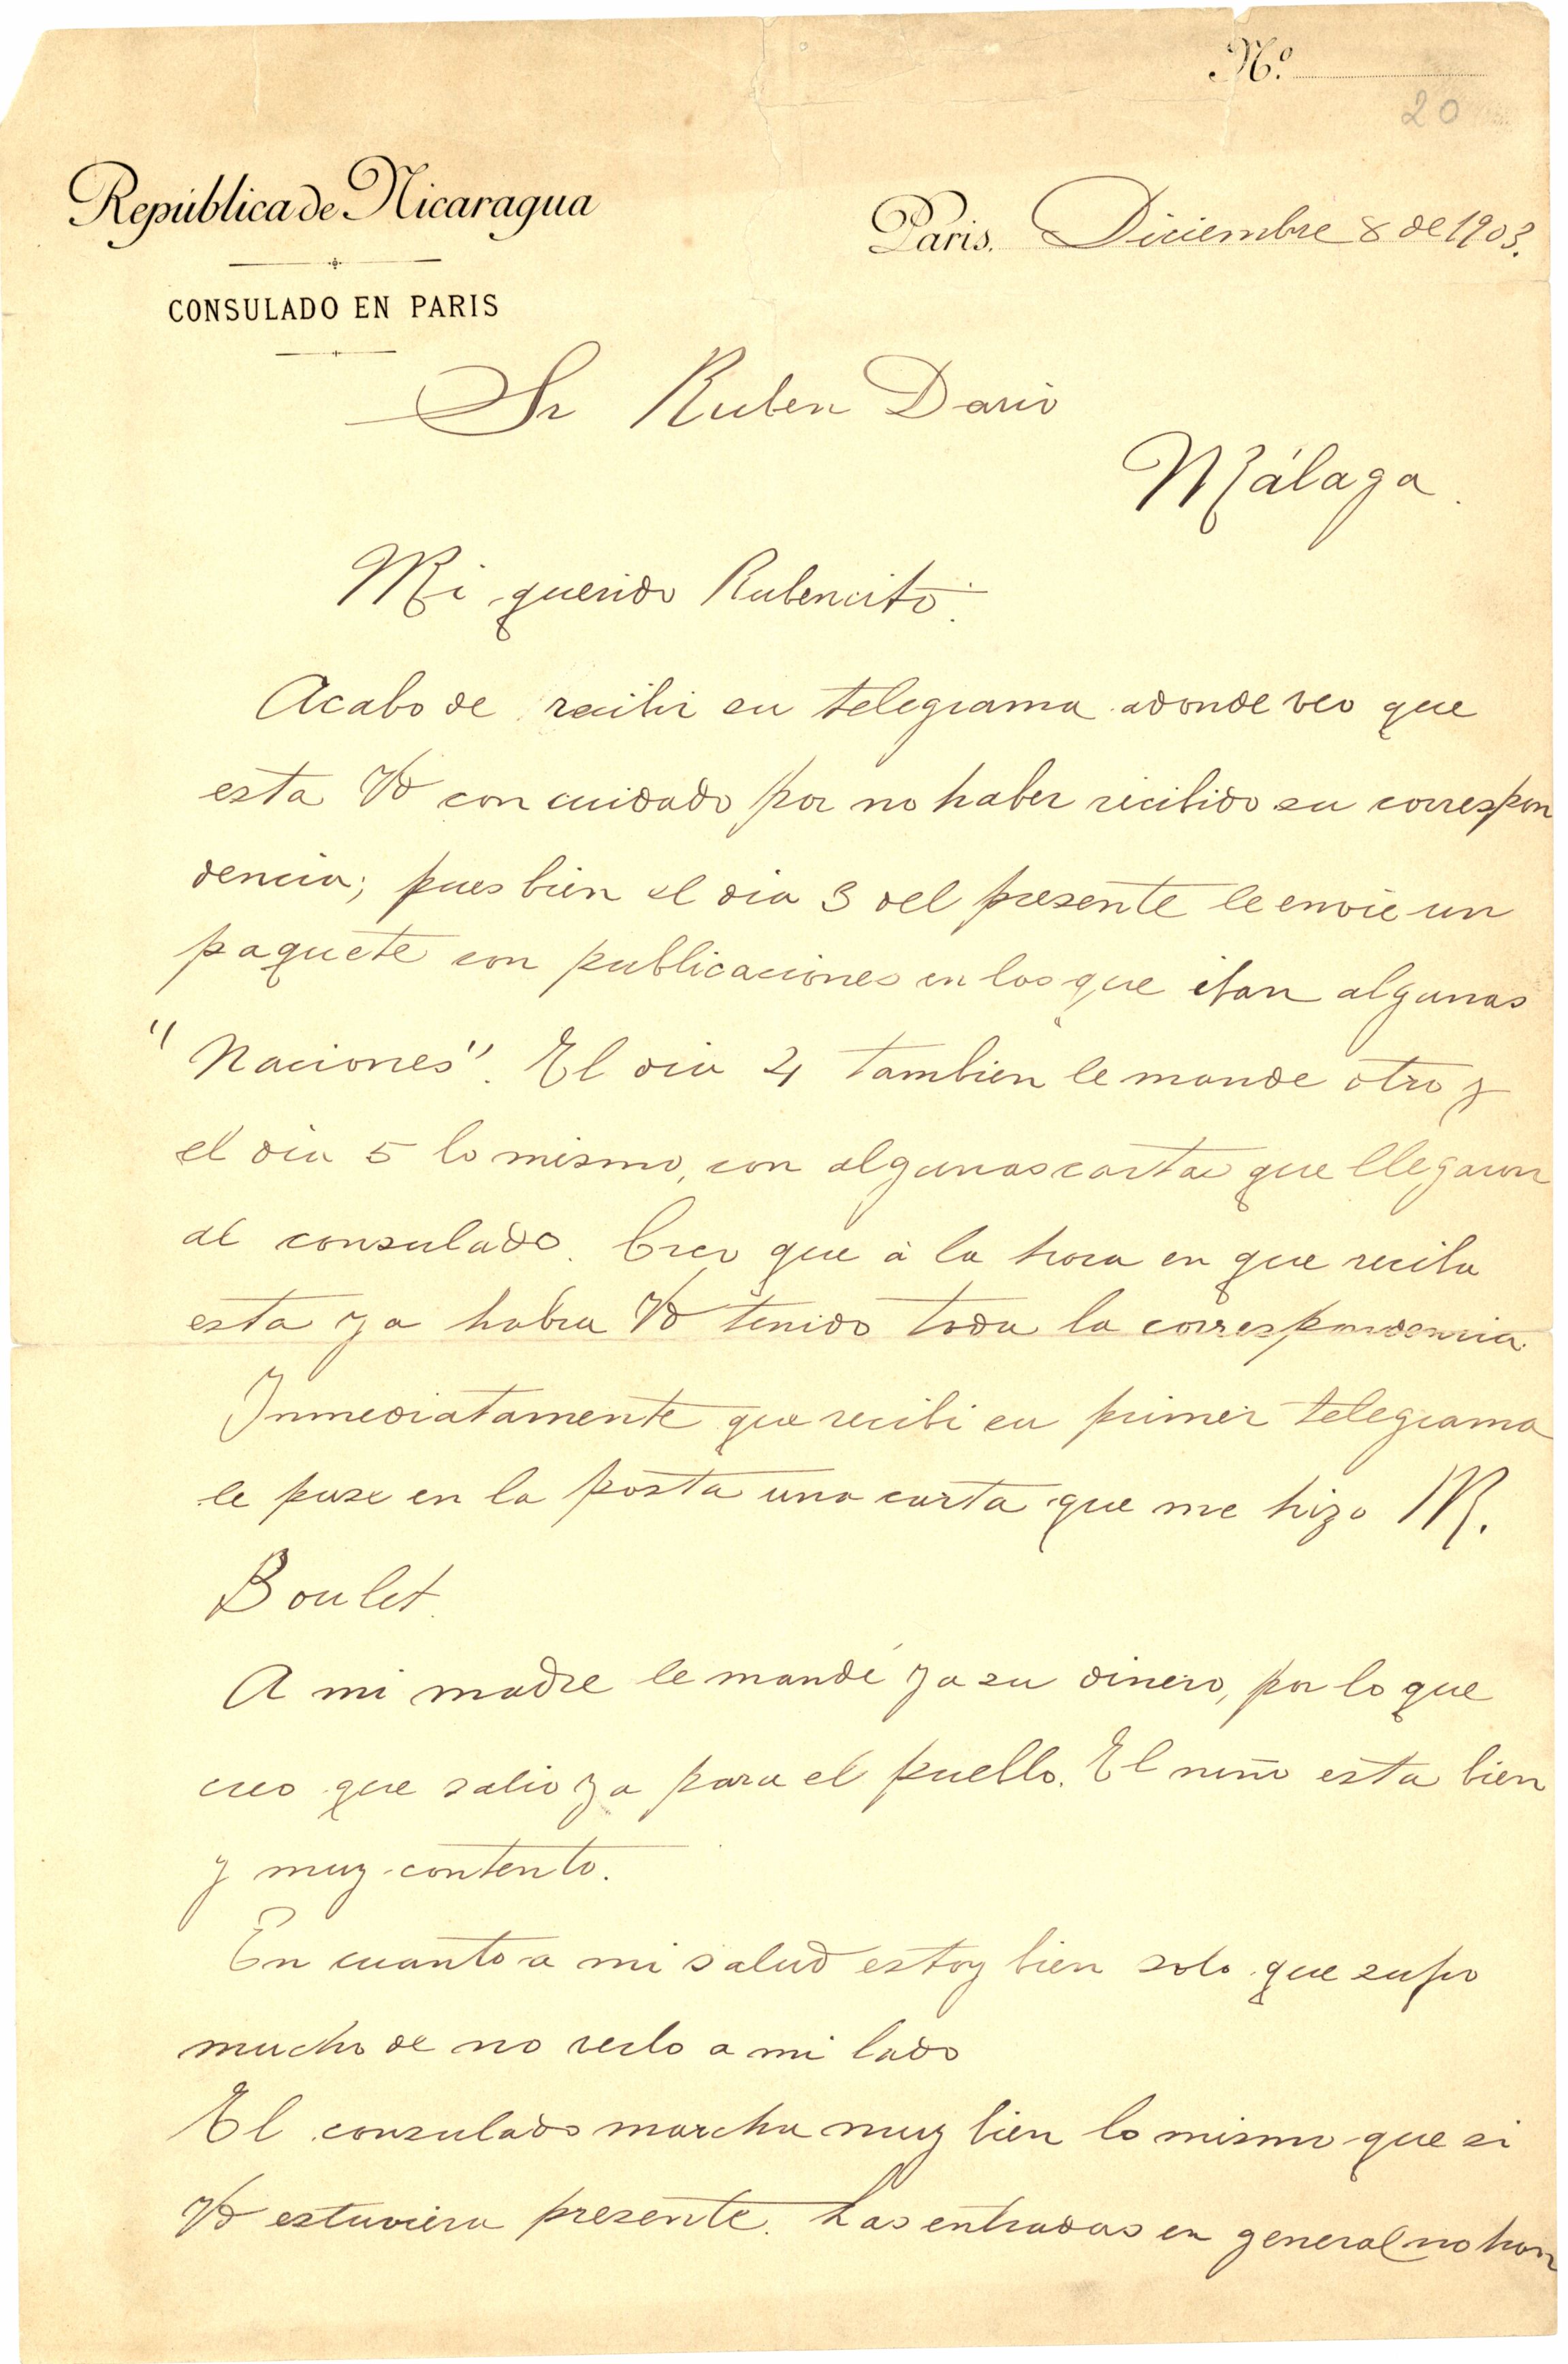 Nº
20
República de Nicaragua
Paris. Diciembre 8 de 1903.
CONSULADO EN PARIS
Sr Ruben Dario
Málaga.
Mi querido Rubencito:
Acabo de recibir su telegrama adonde veo que
esta Vd con cuidado por no haber recibido su correspon
dencia; pues bien el dia 3 del presente le envie un
paquete con publicaciones en los que iban algunas
"Naciones". El dia 4 tambien le mande otro y
el dia 5 lo mismo, con algunas cartas que llegaron
al consulado. Creo que à la hora en que reciba
esta ya habra Vd tenido toda la correspondencia.
Inmediatamente que recibi su primer telegrama
le puse en la posta una carta que me hizo M.
Boulet.
A mi madre le mandé ya su dinero, por lo que
creo que salio ya para el puello. El niño esta bien
y muy contento.
En cuanto a mi salud estoy bien solo que sufro
mucho de no verlo a mi lado
El consulado marcha muy bien lo mismo que si
Vd estuviera presente. Las entradas en general no han